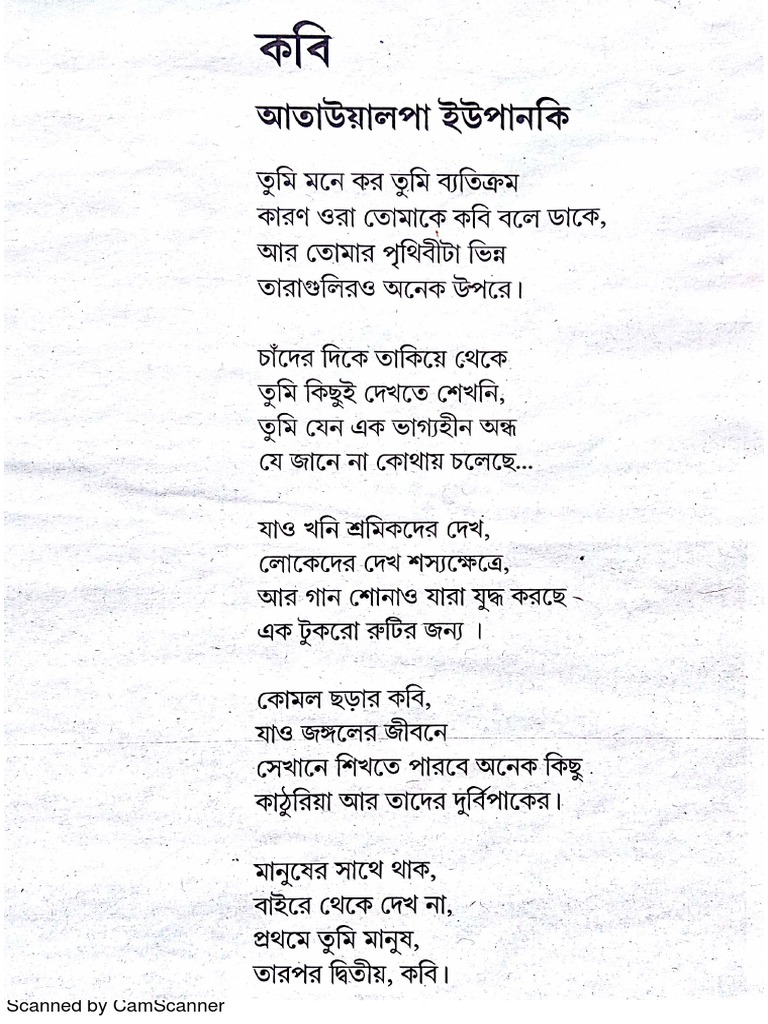 কবি
আতাউয়ালপা ইউপানকি
তুমি মনে কর তুমি ব্যতিক্রম
কারণ ওরা তোমাকে কবি বলে ডাকে,
আর তোমার পৃথিবীটা ভিন্ন
তারাগুলিরও অনেক উপরে।
চাঁদের দিকে তাকিয়ে থেকে
তুমি কিছুই দেখতে শেখনি,
তুমি যেন এক ভাগ্যহীন অন্ধ
যে জানে না কোথায় চলেছে...
যাও খনি শ্রমিকদের দেখ,
লোকেদের দেখ শস্যক্ষেত্রে,
আর গান শোনাও যারা যুদ্ধ করছে -
এক টুকরো রুটির জন্য ।
কোমল ছড়ার কবি,
যাও জঙ্গলের জীবনে
সেখানে শিখতে পারবে অনেক কিছু
কাঠুরিয়া আর তাদের দুর্বিপাকের।
মানুষের সাথে থাক,
বাইরে থেকে দেখ না,
প্রথমে তুমি মানুষ,
তারপর দ্বিতীয়, কবি।
Scanned by CamScanner